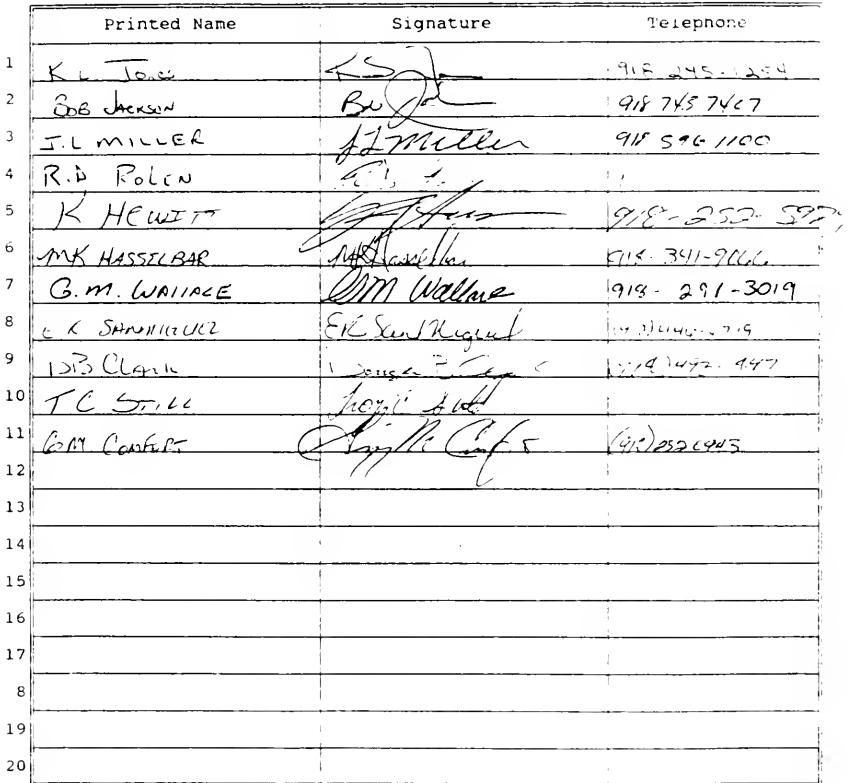 Printed Name Signature Telephone
1 K L Jones 918 245-1254
2 BOB JACKSON 918 745 7467
3 J.L MILLER J L Miller 918 596 1100
4 R.D ROLEN
5 K HEWITT 918-252-597
6 MK HASSELBAR MK Hasselbar 918-341-9066
7 G.M. WALLACE GM Wallace 918-291-3019
8 E K SANMIGUEL EK San Miguel
9 DB Clark
10 T C STILL
11 GM. COMFORT (918)252 6943
12
13
14
15
16
17
8
19
20